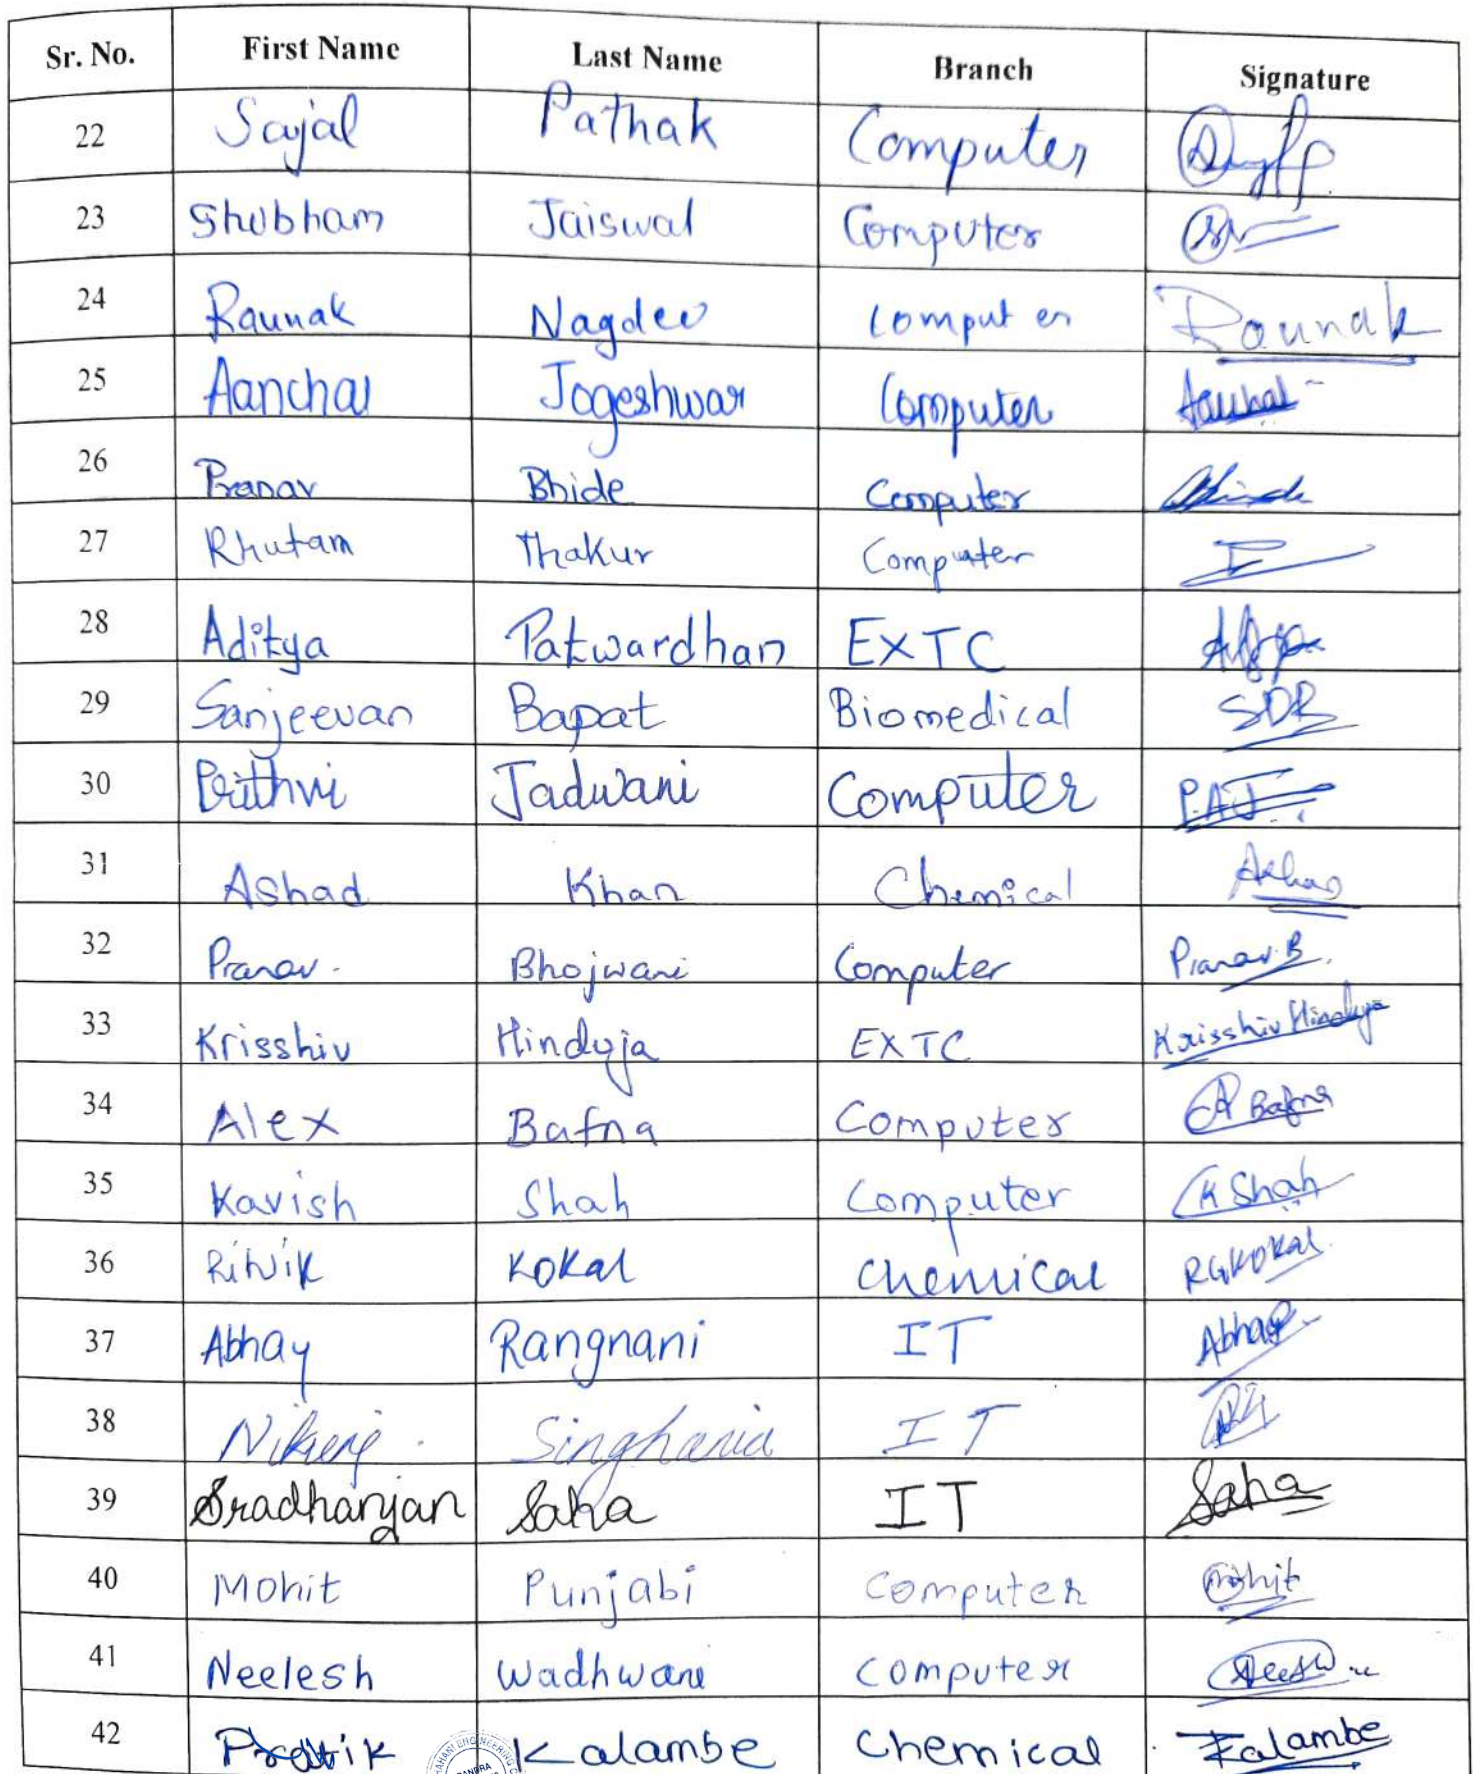 Sr. No. First Name Last Name Branch Signature
22 Sajal Pathak Computer
23 Shubham Jaiswal Computer
24 Raunak Nagdev Computer Raunak
25 Aanchal Jogeshwar Computer Aanchal
26 Pranav Bhide Computer Bhide
27 Rhutam Thakur Computer
28 Aditya Patwardhan EXTC
29 Sanjeevan Bapat Biomedical SDB
30 Prithvi Jadwani Computer P.A.J.
31 Ashad Khan Chemical
32 Pranav Bhojwani Computer Pranav.B.
33 Krisshiv Hinduja EXTC Krisshiv Hinduja
34 Alex Bafna Computer A Bafna
35 Kavish Shah Computer K Shah
36 Ritvik Kokal Chemical RGKOKAL
37 Abhay Rangnani IT Abhay
38 Singhania IT
39 Sradhanjan Saha IT Saha
40 Mohit Punjabi Computer Mohit
41 Neelesh Wadhwani Computer
42 Pratik Kalambe Chemical Kalambe